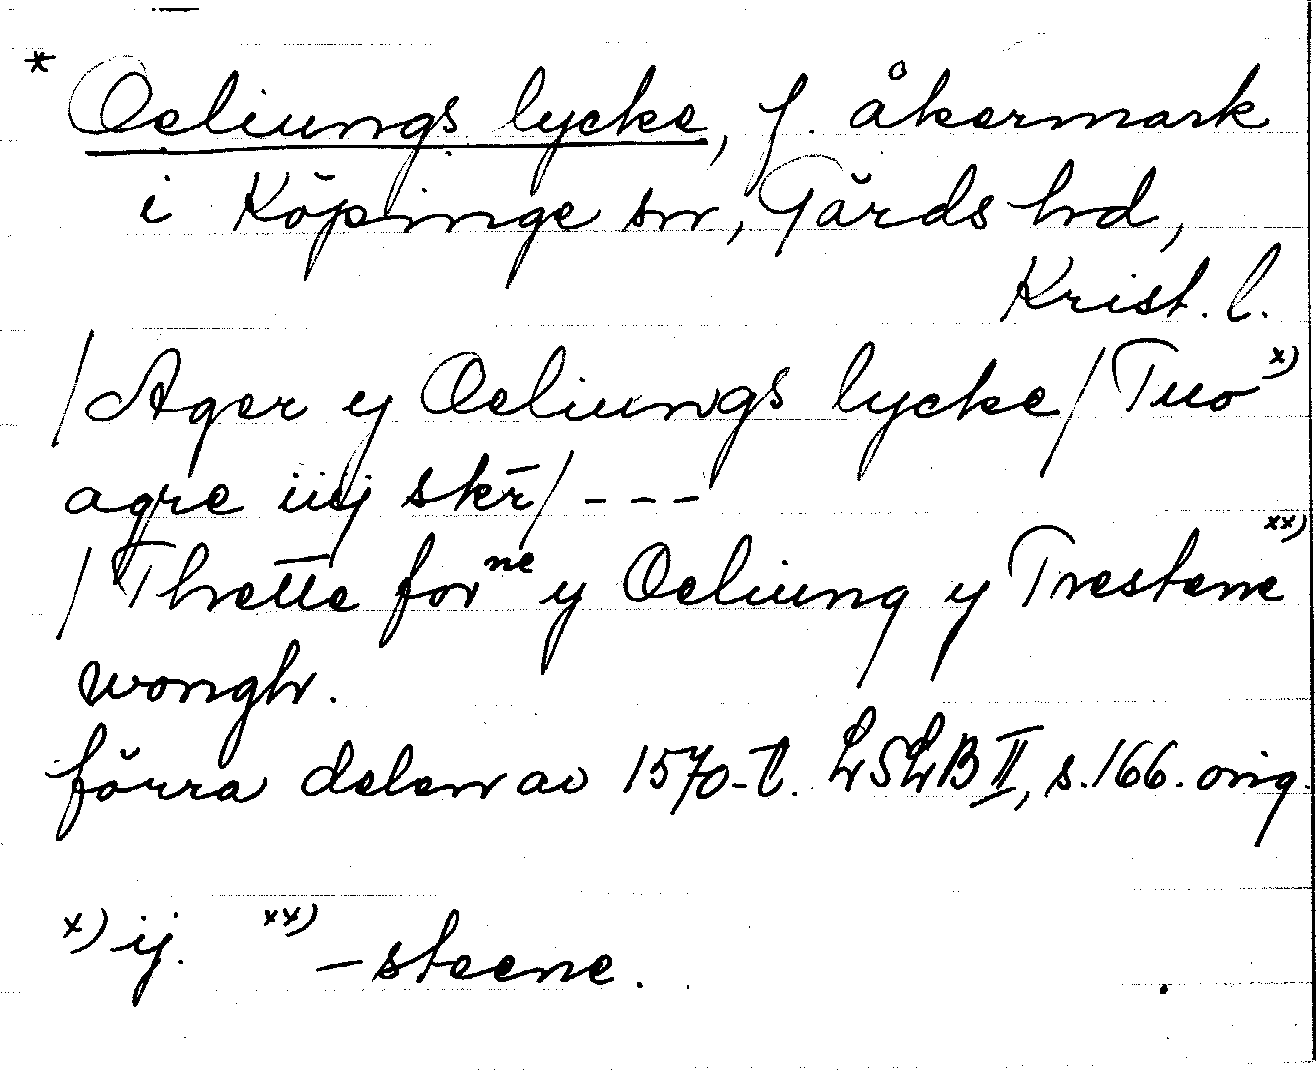 * Oeliungs lycke, f. åkermark
i Köpinge sn, Gärds hd,
Krist. l.
/Ager y Oeliungs lycke/ Tuo x)
agre iiij skr̄/ - - -
/Thrette for ne y Oeliung y Trestene xx)
wongh.
förra delen av 1570-t. LSLB II, s. 166. orig.
x) ij. xx) -steene.